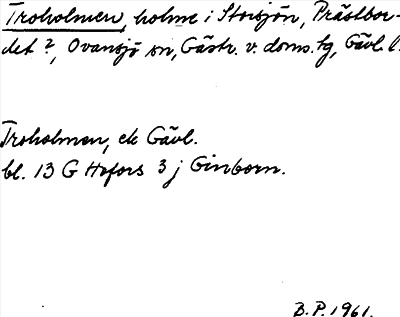 Troholmen, holme i Storsjön, Prästbor-
det?, Ovansjö sn, Gästr. v. doms. tg, Gävl. l.
Troholmen, ek Gävl.
bl. 13 G Hofors 3 j Ginborn.
B.P. 1961.